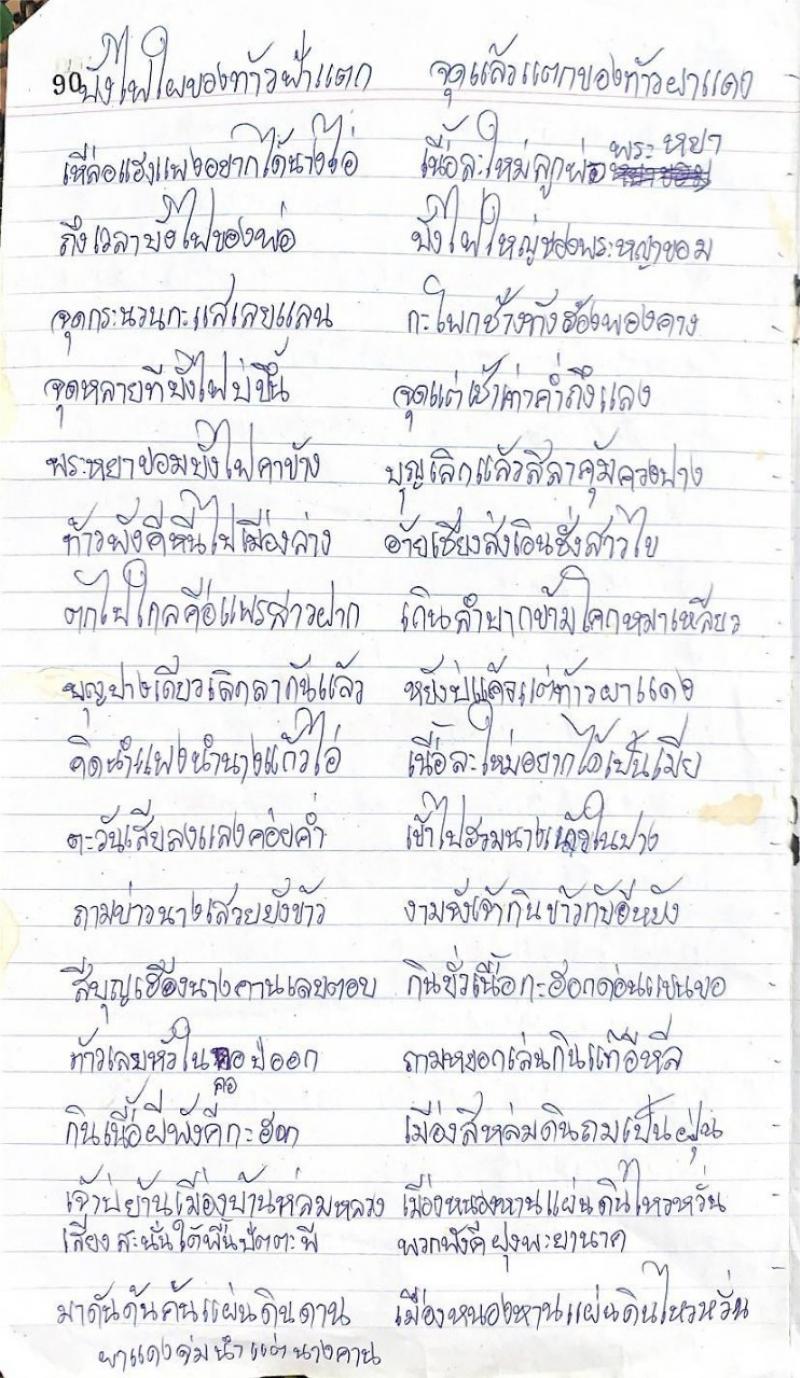 90 บั้งไฟไผของท้าวฟ้าแตก จุดแล้วแตกของท้าวผาแดง
เหื่อแฮงแพงอยากได้นางไอ่ เนื้อละใหม่ลูกพ่อ พระหยา
ถึงเวลาบั้งไฟของพ่อ บั้งไฟใหญ่ของพระหญาขอม
จุดกระนวนกะแสเลยแลน กะโพกช้างทังฮ้องพองคาง
จุดหลายทีบั้งไฟบ่ขึ้น จุดแต่เช้าเท่าค่ำถึงแลง
พระหยาขอมบั้งไฟคาข้าง บุญเลิกแล้วสีลาคุ้มควงปาง
ท้าวพังคีหนีไปเมืองล่าง อ้ายเซียงส่งเอินซั่งสาวไข
ตกไปไกลคือแพรสาวฝาก เดินลำบากข้ามโคกหมาเหลียว
บุญปางเดียวเลิกลากันแล้ว หยังบ่แค้จแต่ท้าวผาแดง
คิดนำแพงนำนางแก้วไอ่ เนื้อละใหม่อยากได้เป็นเมีย
ตะวันเสียลงแลงค่อยค่ำ เข้าไปฮวมนางแก้วในปาง
ถามข่าวนางเสวยยังข้าว งามจั่งเจ้ากินข้าวกับอีหยัง
สีบุญเฮืองนางคานเลยตอบ กินซั่วเนื้อกะฮอกด่อนแขนขอ
ท้าวเลยหัวในคอบ่ออก ถามหยอกเล่นกินแท้อีหลี
กินเนื้อผีพังคีกะฮอก เมืองสีหล่มดินถมเป็นฝุ่น
เจ้าบ่ย้านเมืองบ้านหล่มหลวง เมืองหนองหานแผ่นดินไหวหวั่น
เสียงสะนั่นใต้พื้นปัตตะพี พวกพังคีฝูงพะยานาค
มาดันด้นค้นแผ่นดินดาน เมืองหนองหานแผ่นดินไหวหวั่น
ผาแดงจ่มนำแต่นางคาน